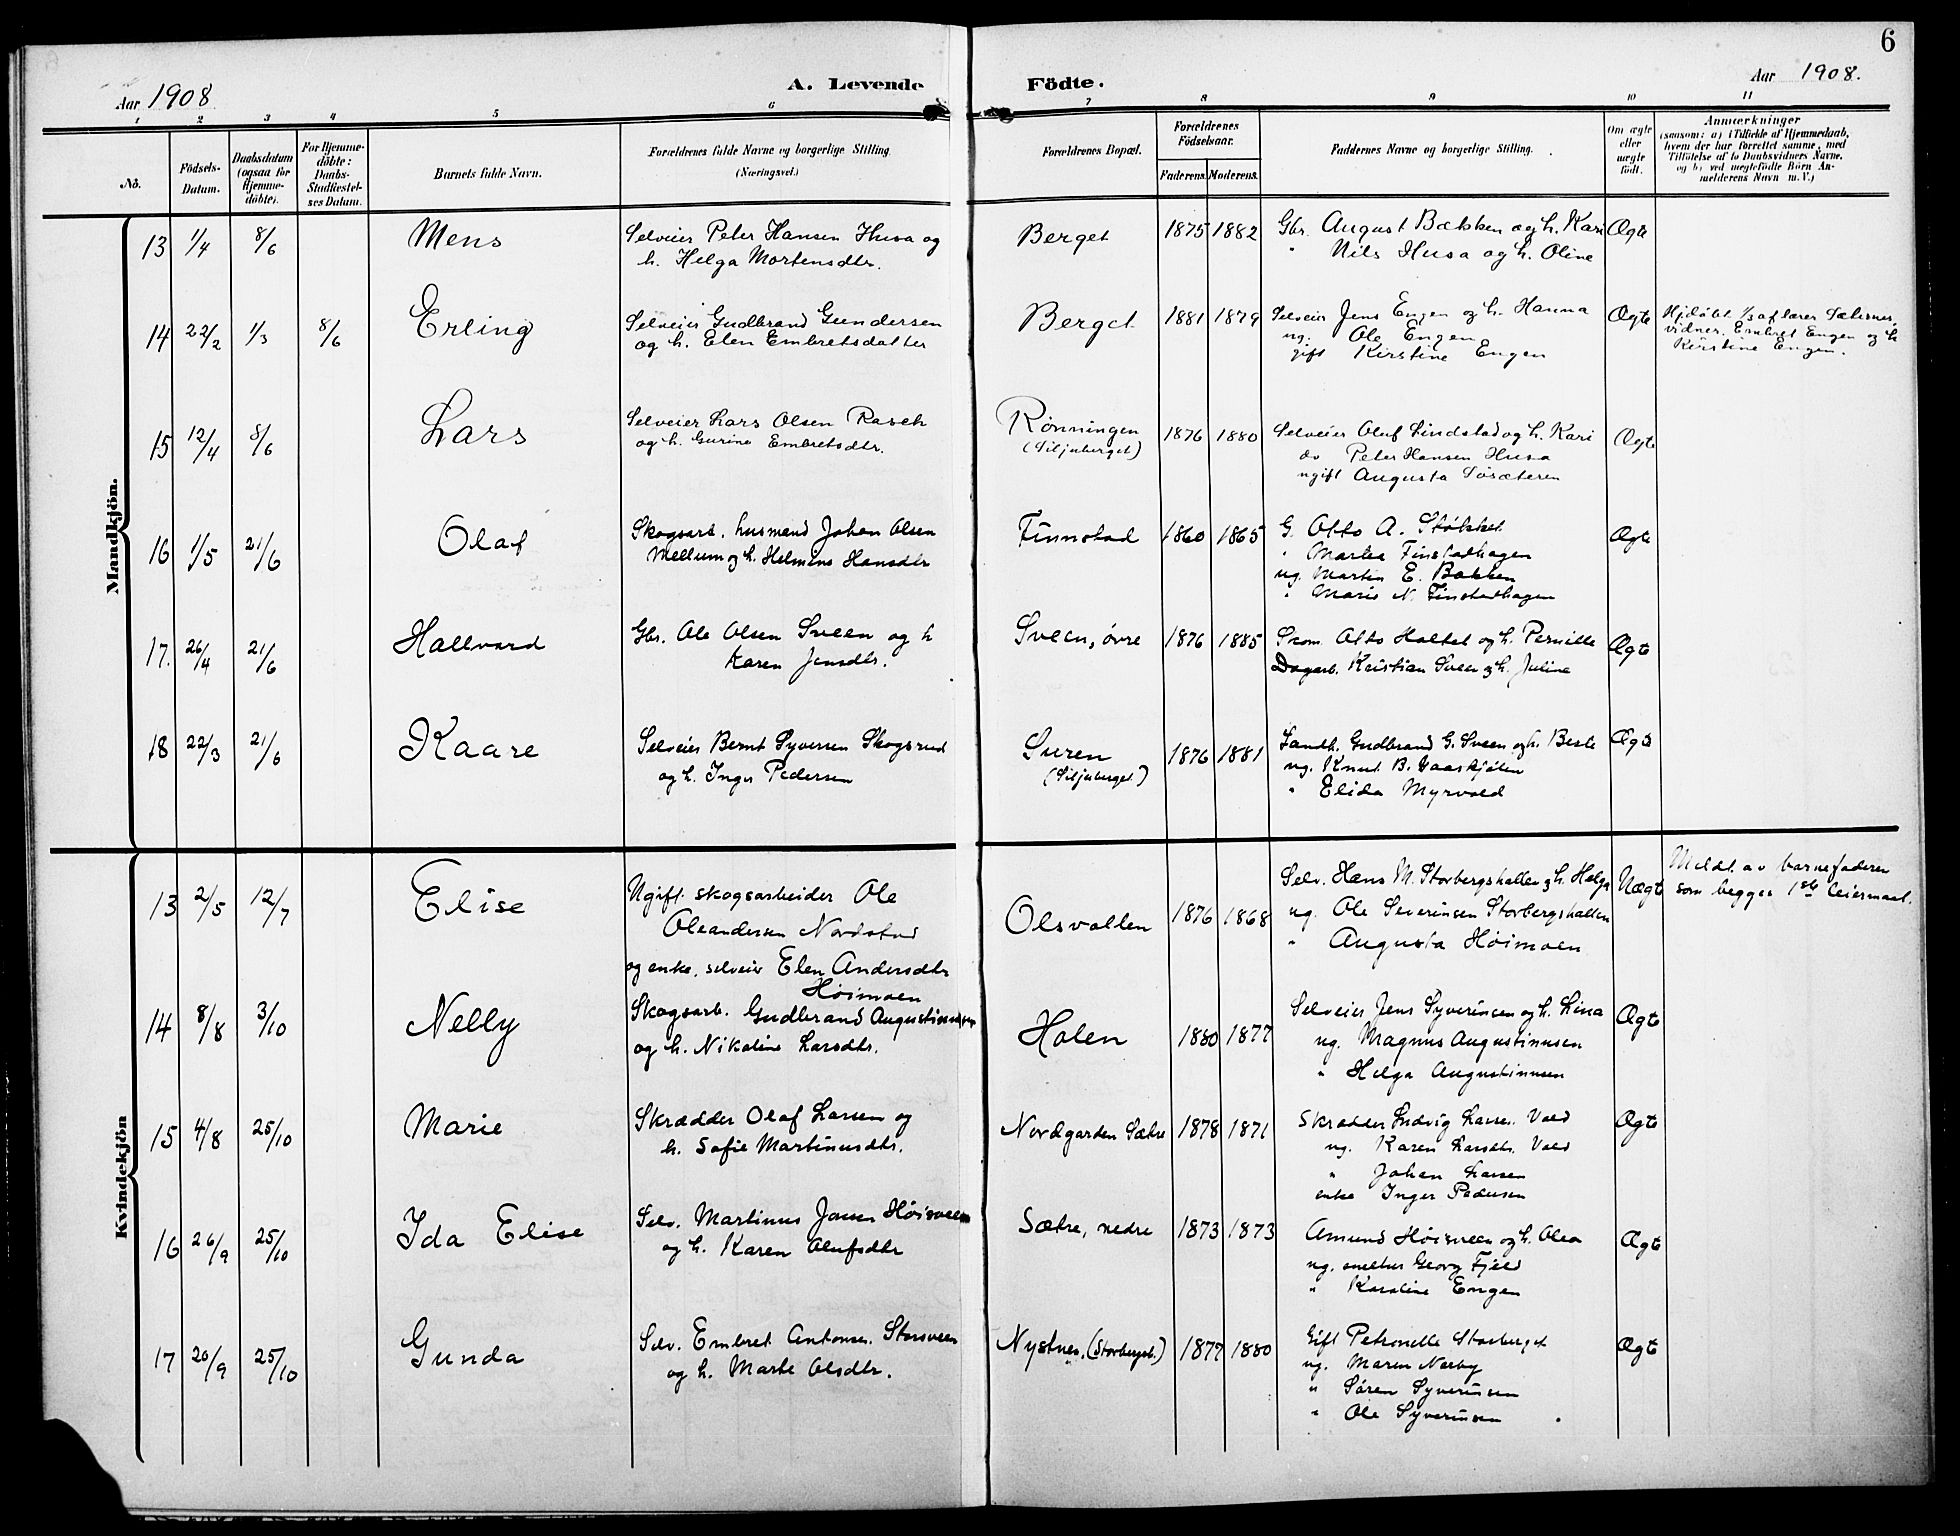 6
Aar 1908.
A. Levende Födte.
Aar 1908.
1 2 3 4 5 6 7 8 9 10 11
No.
Födsels-Datum.
Daabsdatum (ogsaa for Hjemme-döbte).
For Hjemme-döbte: Daabs-Stadfæstel-ses Datum.
Barnets fulde Navn.
Forældrenes fulde Navne og borgerlige Stilling. (Næringsvei.)
Forældrenes Bopæl.
Forældrenes Födselsaar.
Faderens. Moderens.
Faddernes Navne og borgerlige Stilling.
Om ægte eller uægte födt.
Anmærkninger
(saasom: a) i Tilfælde af Hjemmedaab,
hvem der har forrettet samme, med
Tilföielse af to Daabsvidners Navne,
og b) ved uægtefödte Börn An-
melderens Navn m. V.)
Mandkjön.
13 1/4 8/6 Mens Selveier Peter Hansen Husa og Berget 1875 1882 Gbr. August Bækken og h. Kari Ægte
h. Helga Mortensdtr. " Nils Husa og h. Oline
14 22/2 1/3 8/6 Erling Selveier Gudbrand Gundersen Berget 1881 1879 Selveier Jens Engen og h. Hanna Ægte Hjdøbt 1/3 af lærer Sæternes,
og h. Elen Embretsdatter ug. Ole Engen vidner, Embret Engen og h
gift Kirstine Engen Kirstine Engen.
15 12/4 8/6 Lars Selveier Lars Olsen Rasch Rønningen 1876 1880 Selveier Oluf Lindstad og h. Kari Ægte
og h. Gurine Embretsdtr. (Siljuberget) do Peter Hansen Husa
ugift Augusta Søsæteren
16 1/5 21/6 Olaf Skogsarb. husmand Johan Olsen Finnstad 1860 1865 G. Otto A. Støkket Ægte
Mellum og h. Helmine Hansdtr " Martea Finstadhagen
ug. Martin E. Bakken
" Marie N. Finstadhagen
17. 26/4 21/6 Hallvard Gbr. Ole Olsen Sveen og h Sveen, øvre 1876 1885 Skom. Otto Holtet og h. Pernille Ægte
Karen Jensdtr. Dagarb. Kristian Sveen og h. Juline
18 22/3 21/6 Kaare Selveier Bernt Syversen Skogsrud Suren 1876 1881 Landh. Gudbrand G. Sveen og h. Berte Ægte
og h. Inger Pedersen (Siljuberget) ug. Knut B. Gaaskjølen
" Elida Myrvold
Kvindekjön
13 2/5 12/7 Elise Ugift skogsarbeider Ole Olsvollen 1876 1868 Selv. Hans M. Storbergshallen og h. Helga Uægte Meldt av barnefaderen
Oleandersen Nordstad ug. Ole Severinsen Storbergshallen som begges 1ste leiermaal.
og enke, selveier Elen Andersdtr " Augusta Høimoen
Høimoen
14 8/8 3/10 Nelly Skogsarb. Gudbrand Augustinusen Holen 1880 1877 Selveier Jens Syverinsen og h. Lina Ægte
og h. Nikoline Larsdtr. ug. Magnus Augustinusen
" Helga Augustinusen
15 4/8 25/10 Marie Skrædder Olaf Larsen og Nordgarden Sætre 1878 1871 Skrædder Ludvig Larsen Vold Ægte
h. Sofie Martinusdtr. ug. Karen Larsdtr. Vold
" Johan Larsen
enke Inger Pedersen
16 26/9 25/10 Ida Elise Selv. Martinus Jonsen Høisveen Sætre, nedre 1873 1873 Amund Høisveen og h. Olea Ægte
og h. Karen Olufsdtr ug. smelter Georg Fjeld
" Karoline Engen
17 20/9 25/10 Gunda Selv. Embret Antonsen Storsveen Nystuen, (Storberget.) 1877 1880 Gift Petronelle Storberget Ægte
og h. Marte Olsdtr. ug. Maren Nerby
" Søren Syverinsen
" Ole Syverinsen